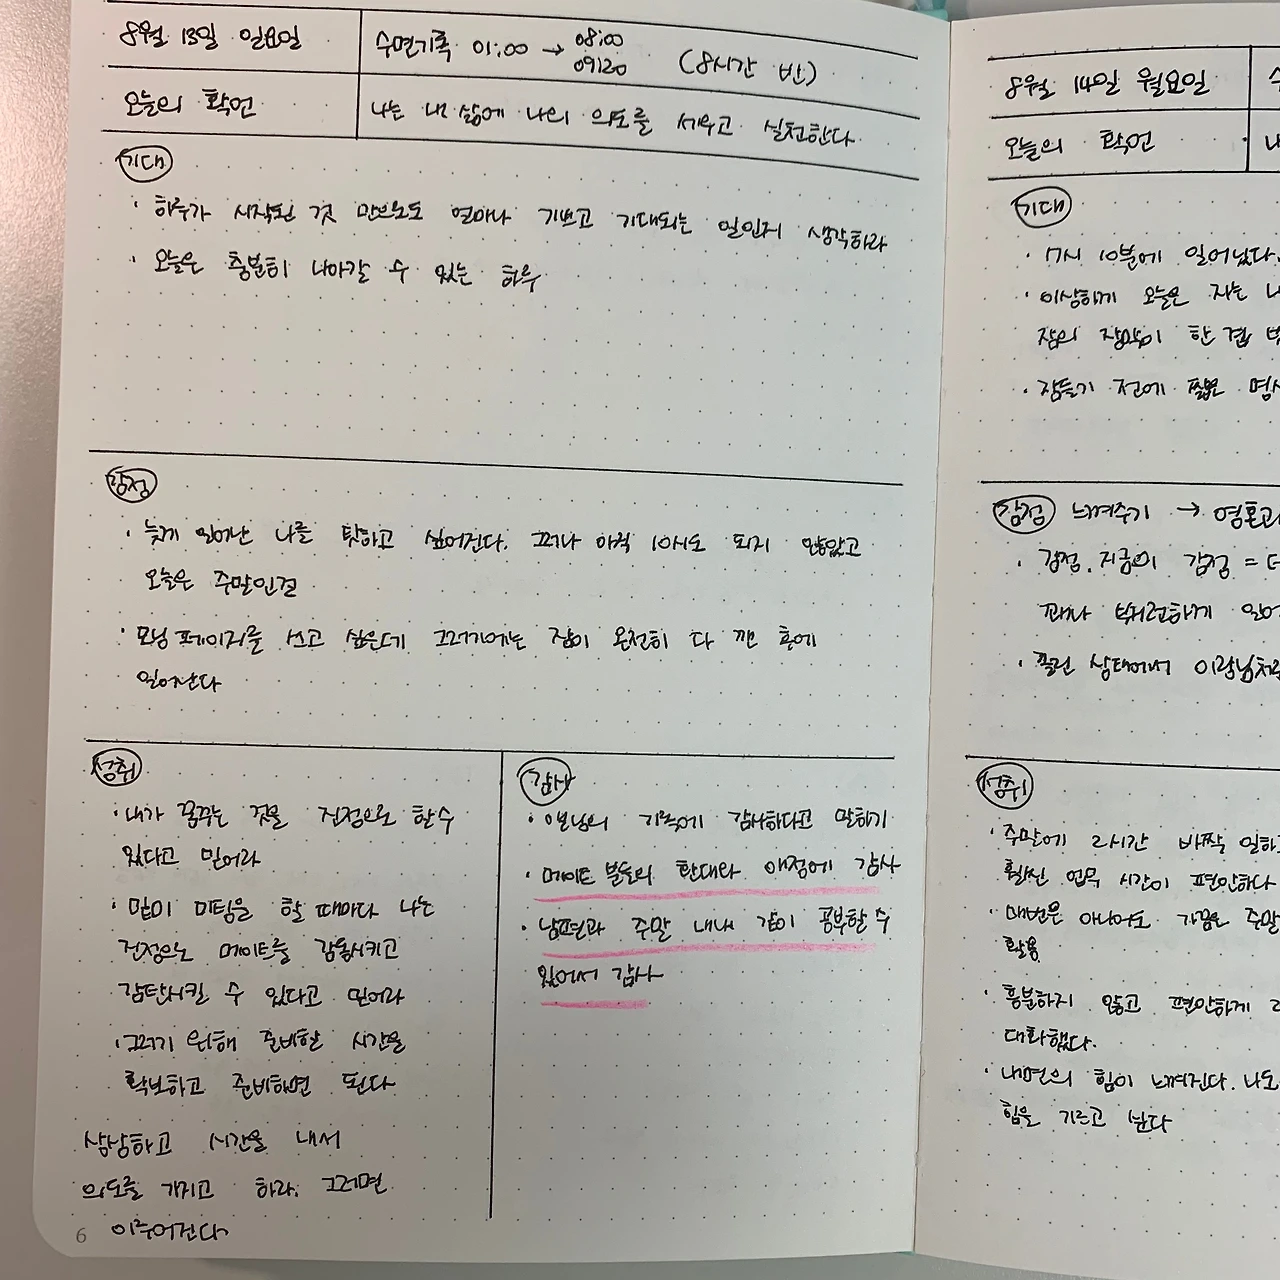 8월 13일 일요일
수면기록 01:00 → 08:00
09:20
(8시간 반)
오늘의 확언
나는 내 삶에 나의 의도를 세우고 실천한다
기대
· 하루가 시작된 것 만으로도 얼마나 기쁘고 기대되는 일인지 생각하라
· 오늘은 충분히 나아갈 수 있는 하루
감정
· 늦게 일어난 나를 탓하고 싶어진다. 그러나 아직 10시도 되지 않았고
오늘은 주말인걸
· 모닝페이지를 쓰고 싶은데 그러기에는 잠이 온전히 다 깬 후에
일어난다
성취
· 내가 꿈꾸는 것을 진정으로 할 수
있다고 믿어라
· 밑미 미팅을 할 때마다 나는
진정으로 메이트를 감동시키고
감탄시킬 수 있다고 믿어라
· 그러기 위해 준비할 시간을
확보하고 준비하면 된다
상상하고 시간을 내서
의도를 가지고 하라. 그러면
이루어진다
감사
· 님의 기록에 감사하다고 말하기
· 메이트 분들의 환대와 애정에 감사
· 남편과 주말 내내 같이 공부할 수
있어서 감사
6
8월 14일 월요일
오늘의 확언
기대
· 7시 10분에 일어났다.
· 이상하게 오늘은 자는
잠의 장막이 한 겹
· 잠들기 전에 짧은
감정 느껴주기 → 영혼과
· 감정. 지금의 감정 =
· 졸린 상태에서
성취
· 주말에 2시간 바짝
훨씬 업무 시간이 편안하다
· 매번은 아니어도 가끔은 주말
활용
· 흥분하지 않고 편안하게
대화했다.
· 내면의 힘이 느껴진다. 나도
힘을 기르고 싶다